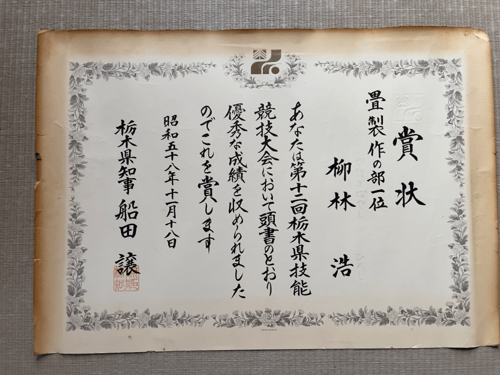 賞状
畳製作の部一位
柳林 浩
あなたは第十二回栃木県技能
競技大会において頭書のとおり
優秀な成績を収められました
のでこれを賞します
昭和五十八年十一月十八日
栃木県知事 船田 譲